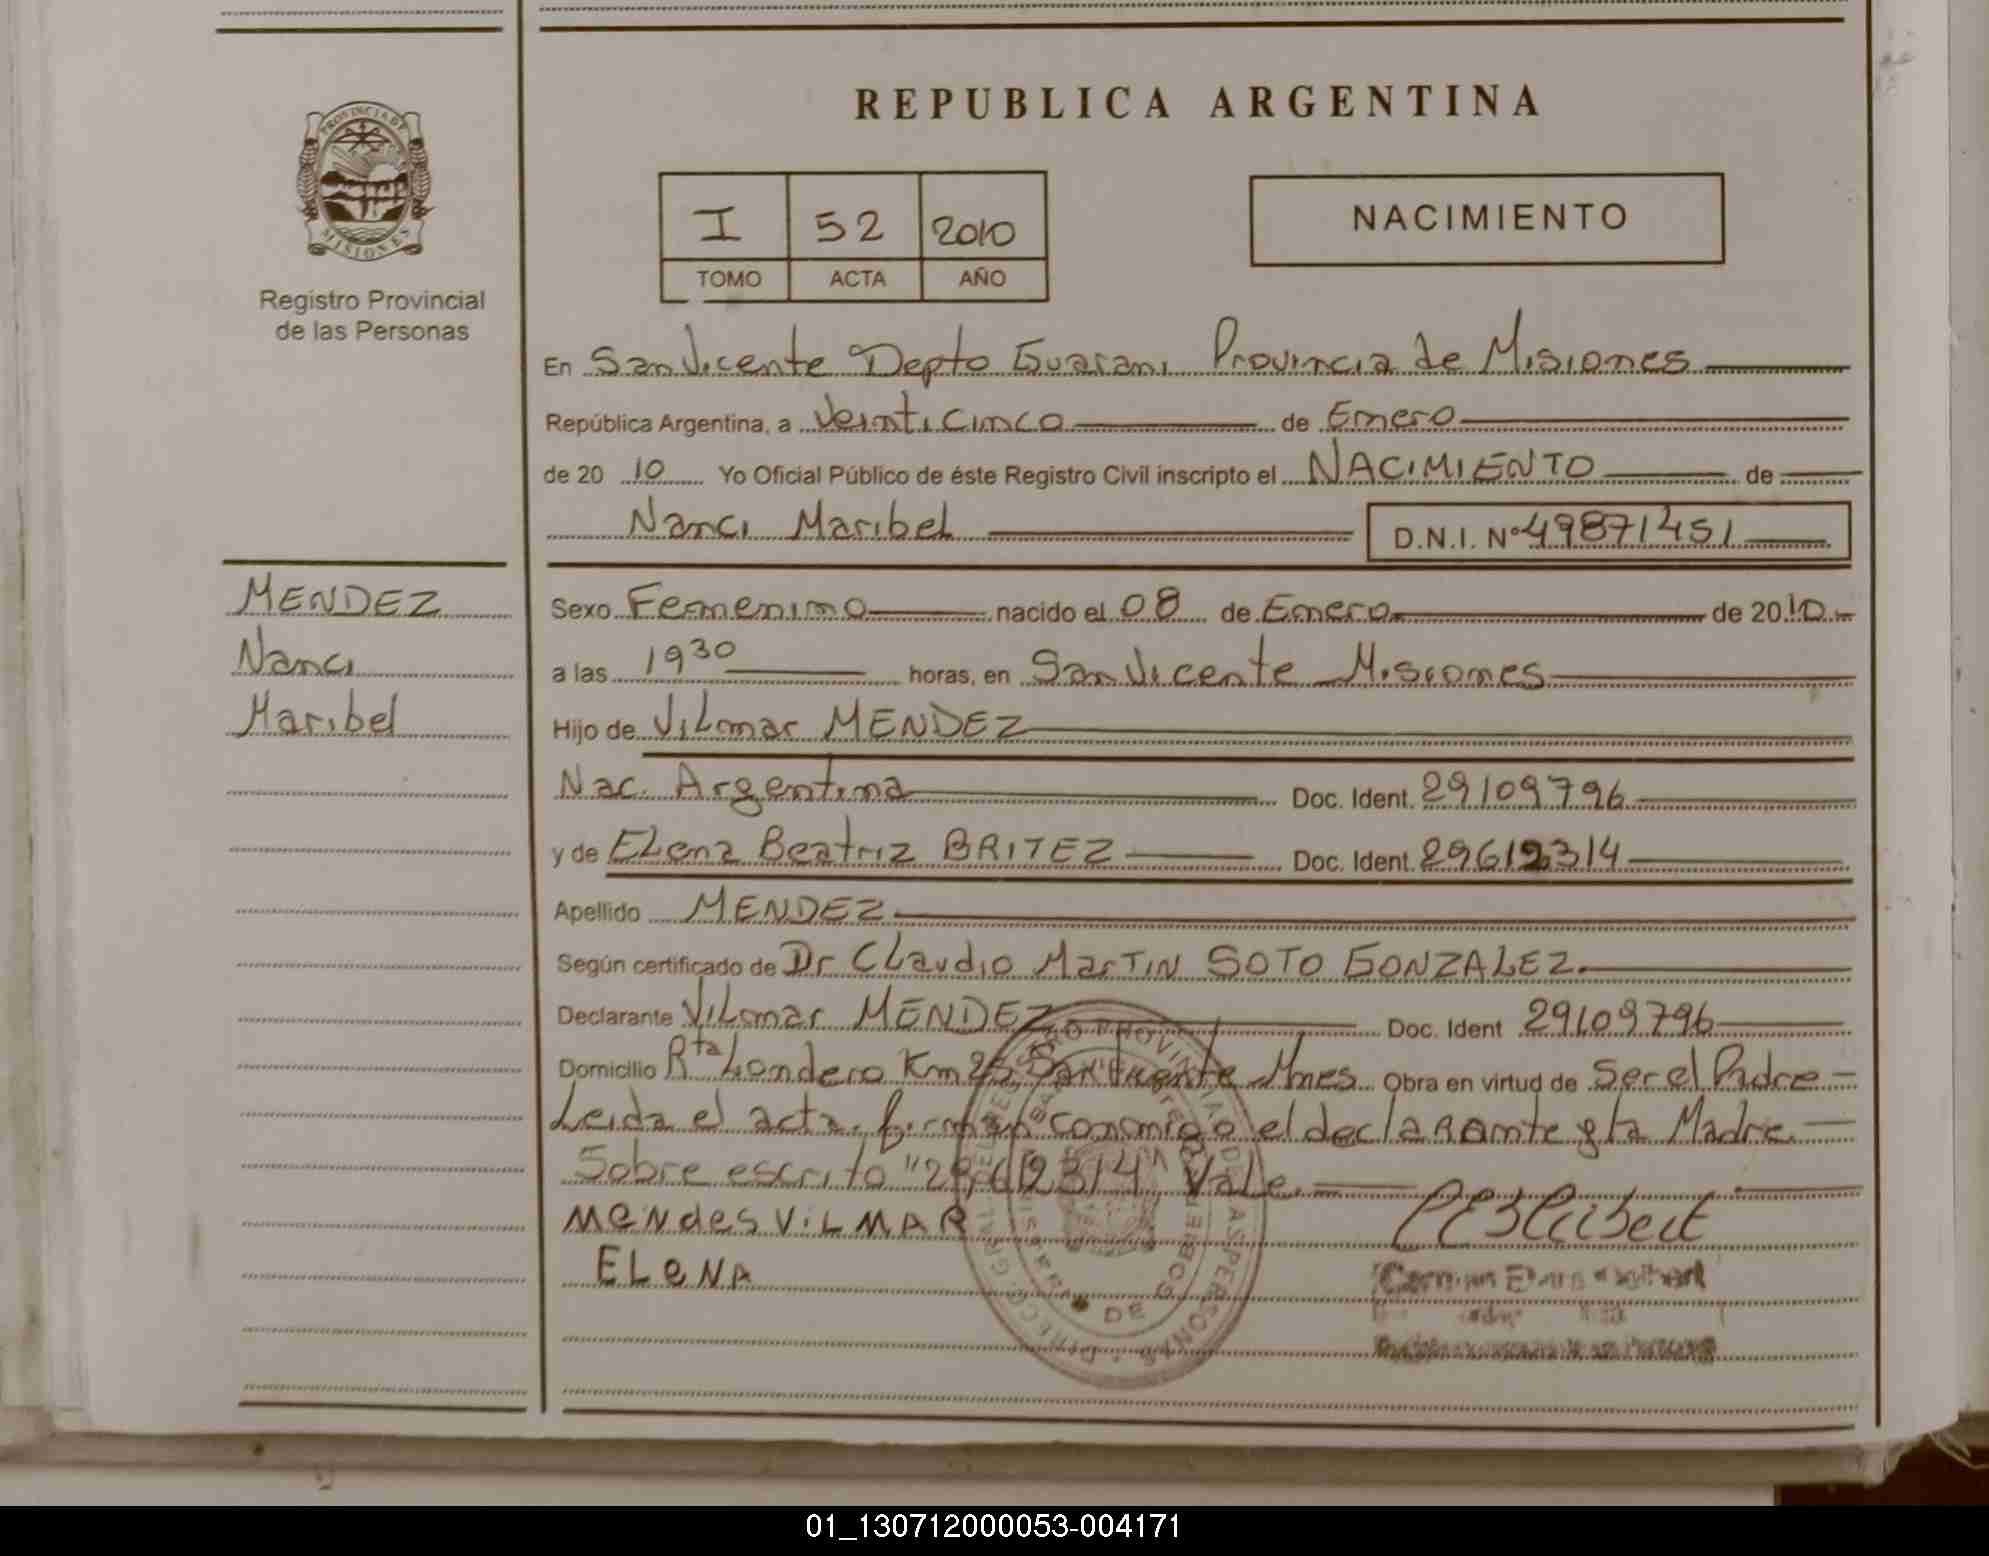 PROVINCIA DE
MISIONES
Registro Provincial
de las Personas
REPUBLICA ARGENTINA
I 52 2010
TOMO ACTA AÑO
NACIMIENTO
En San Vicente Depto Guarani Provincia de Misiones
República Argentina, a Veinticinco de Enero
de 20 10 Yo Oficial Público de éste Registro Civil inscripto el NACIMIENTO de
Nanci Maribel D.N.I. Nº 49871451
MENDEZ
Nanci
Maribel
Sexo Femenino nacido el 08 de Enero de 2010
a las 1930 horas, en San Vicente Misiones
Hijo de Vilmar MENDEZ
Nac. Argentina Doc. Ident. 29109796
y de Elena Beatriz BRITEZ Doc. Ident. 29612314
Apellido MENDEZ
Según certificado de Dr Claudio Martin SOTO GONZALEZ.
Declarante Vilmar MENDEZ Doc. Ident 29109796
Domicilio Rta Londero Km 25 San Vicente Mnes Obra en virtud de Ser el Padre
Leida el acta, firman conmigo el declarante y la Madre.
Sobre escrito "29612314" Vale.
MeNdes ViLMAR
ELeNA
01_130712000053-004171